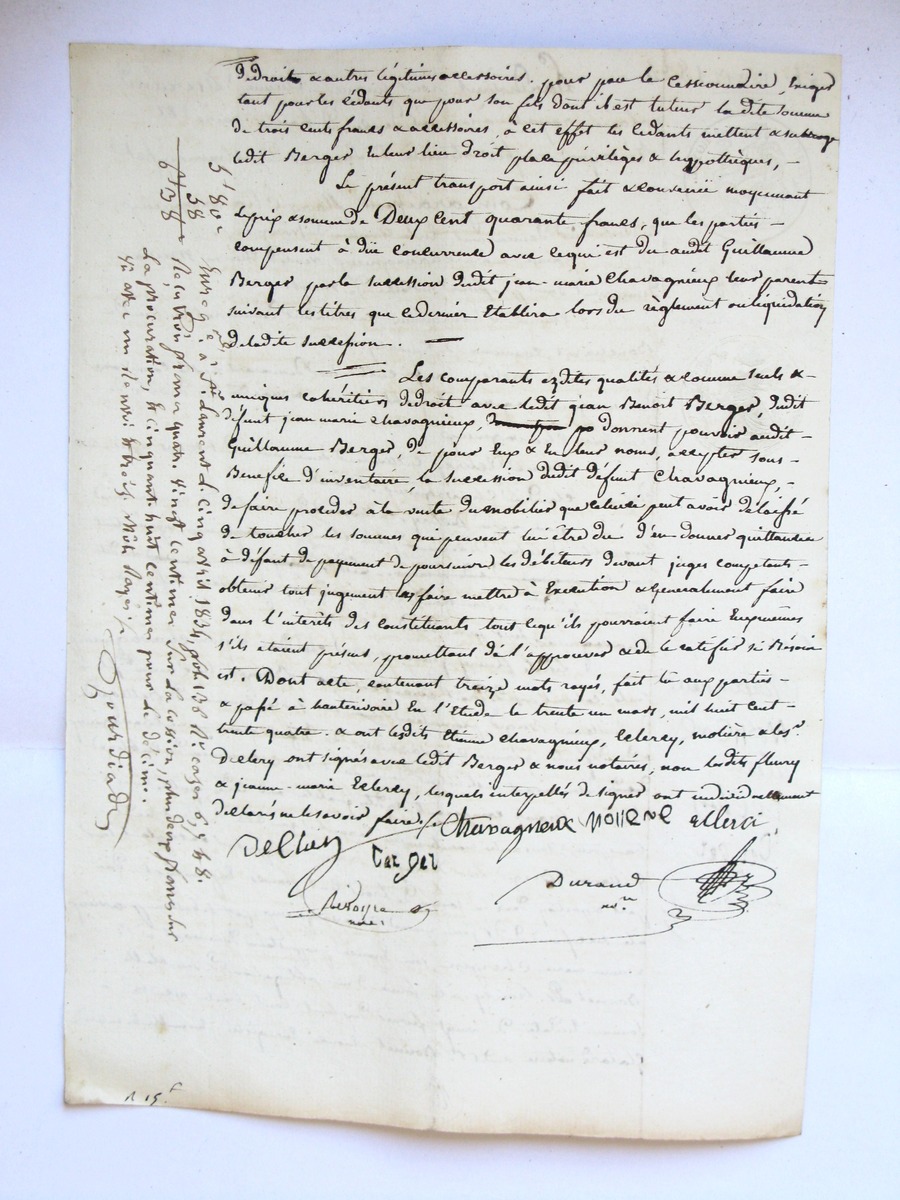 de droit & autres légitimes accessoires. pour par le Cessionnaire, Exiger
tant pour les Cédants que pour son fils dont il est tuteur la dite somme
de trois cents francs & accessoires, à cet effet les cédants mettent & subroge
ledit Berger En leur lieu droit place privilèges & hyppothèques, -
Le présent transport ainsi fait & convenu moyennant
le prix & somme de Deux Cent quarante francs, que les parties -
compensent à düe concurrence avec ce qui est du audit Guillaume
Berger par la succession dudit jean-marie Chavagnieux leur parent
suivant les titres que le dernier Etablira lors du règlement ou liquidation
de ladite succession. —
Les comparants ezdites qualités & comme seuls &-
uniques cohéritiers de droit avec ledit jean Benoit Berger, dudit
défunt jean marie Chavagnieux, donnent pouvoir audit -
Guillaume Berger, de pour Eux & En leur noms, accepter sous -
Bénéfice d'inventaire, la succession dudit défunt Chavagnieux, -
de faire procéder à la vente du mobilier que celui-ci peut avoir délaissé
de toucher les sommes qui peuvent lui être due d'en donner quittances
à défaut de payement de poursuivre les débiteurs devant juges competents -
obtenir tout jugement les faire mettre à Execution & Généralement faire
dans l'intérêts des constituants tout ce qu'ils pourraient faire Euxmêmes
s'ils etaient présens, promettant de l'approuver & de le ratifier si Besoin
est. Dont acte, contenant treize mots rayés, fait lu aux parties -
& passé à hauterivoire En l'Etude le trente un mars, mil huit cent -
trente quatre. & ont lesdits Etienne Chavagnieux, Eclercy, molière & les
Delery ont signés avec ledit Berger & nous notaires, non lesdits fleury
& jeanne-marie Eclercy, lesquels interpellés de signer ont individuellement
déclarés ne le savoir faire.
Chavagneux Moliere eclerci
Delhery
Berger
Durand
nre
5f 80c
58
6f 38
Enregé à St Laurent le cinq avril 1834, fol: 138 Ro cases 6, 7 & 8.
Reçu trois francs quatre vingt centimes sur la cession, plus deux francs sur
la procuration, & cinquante huit centimes pour le décime.
R 15 f